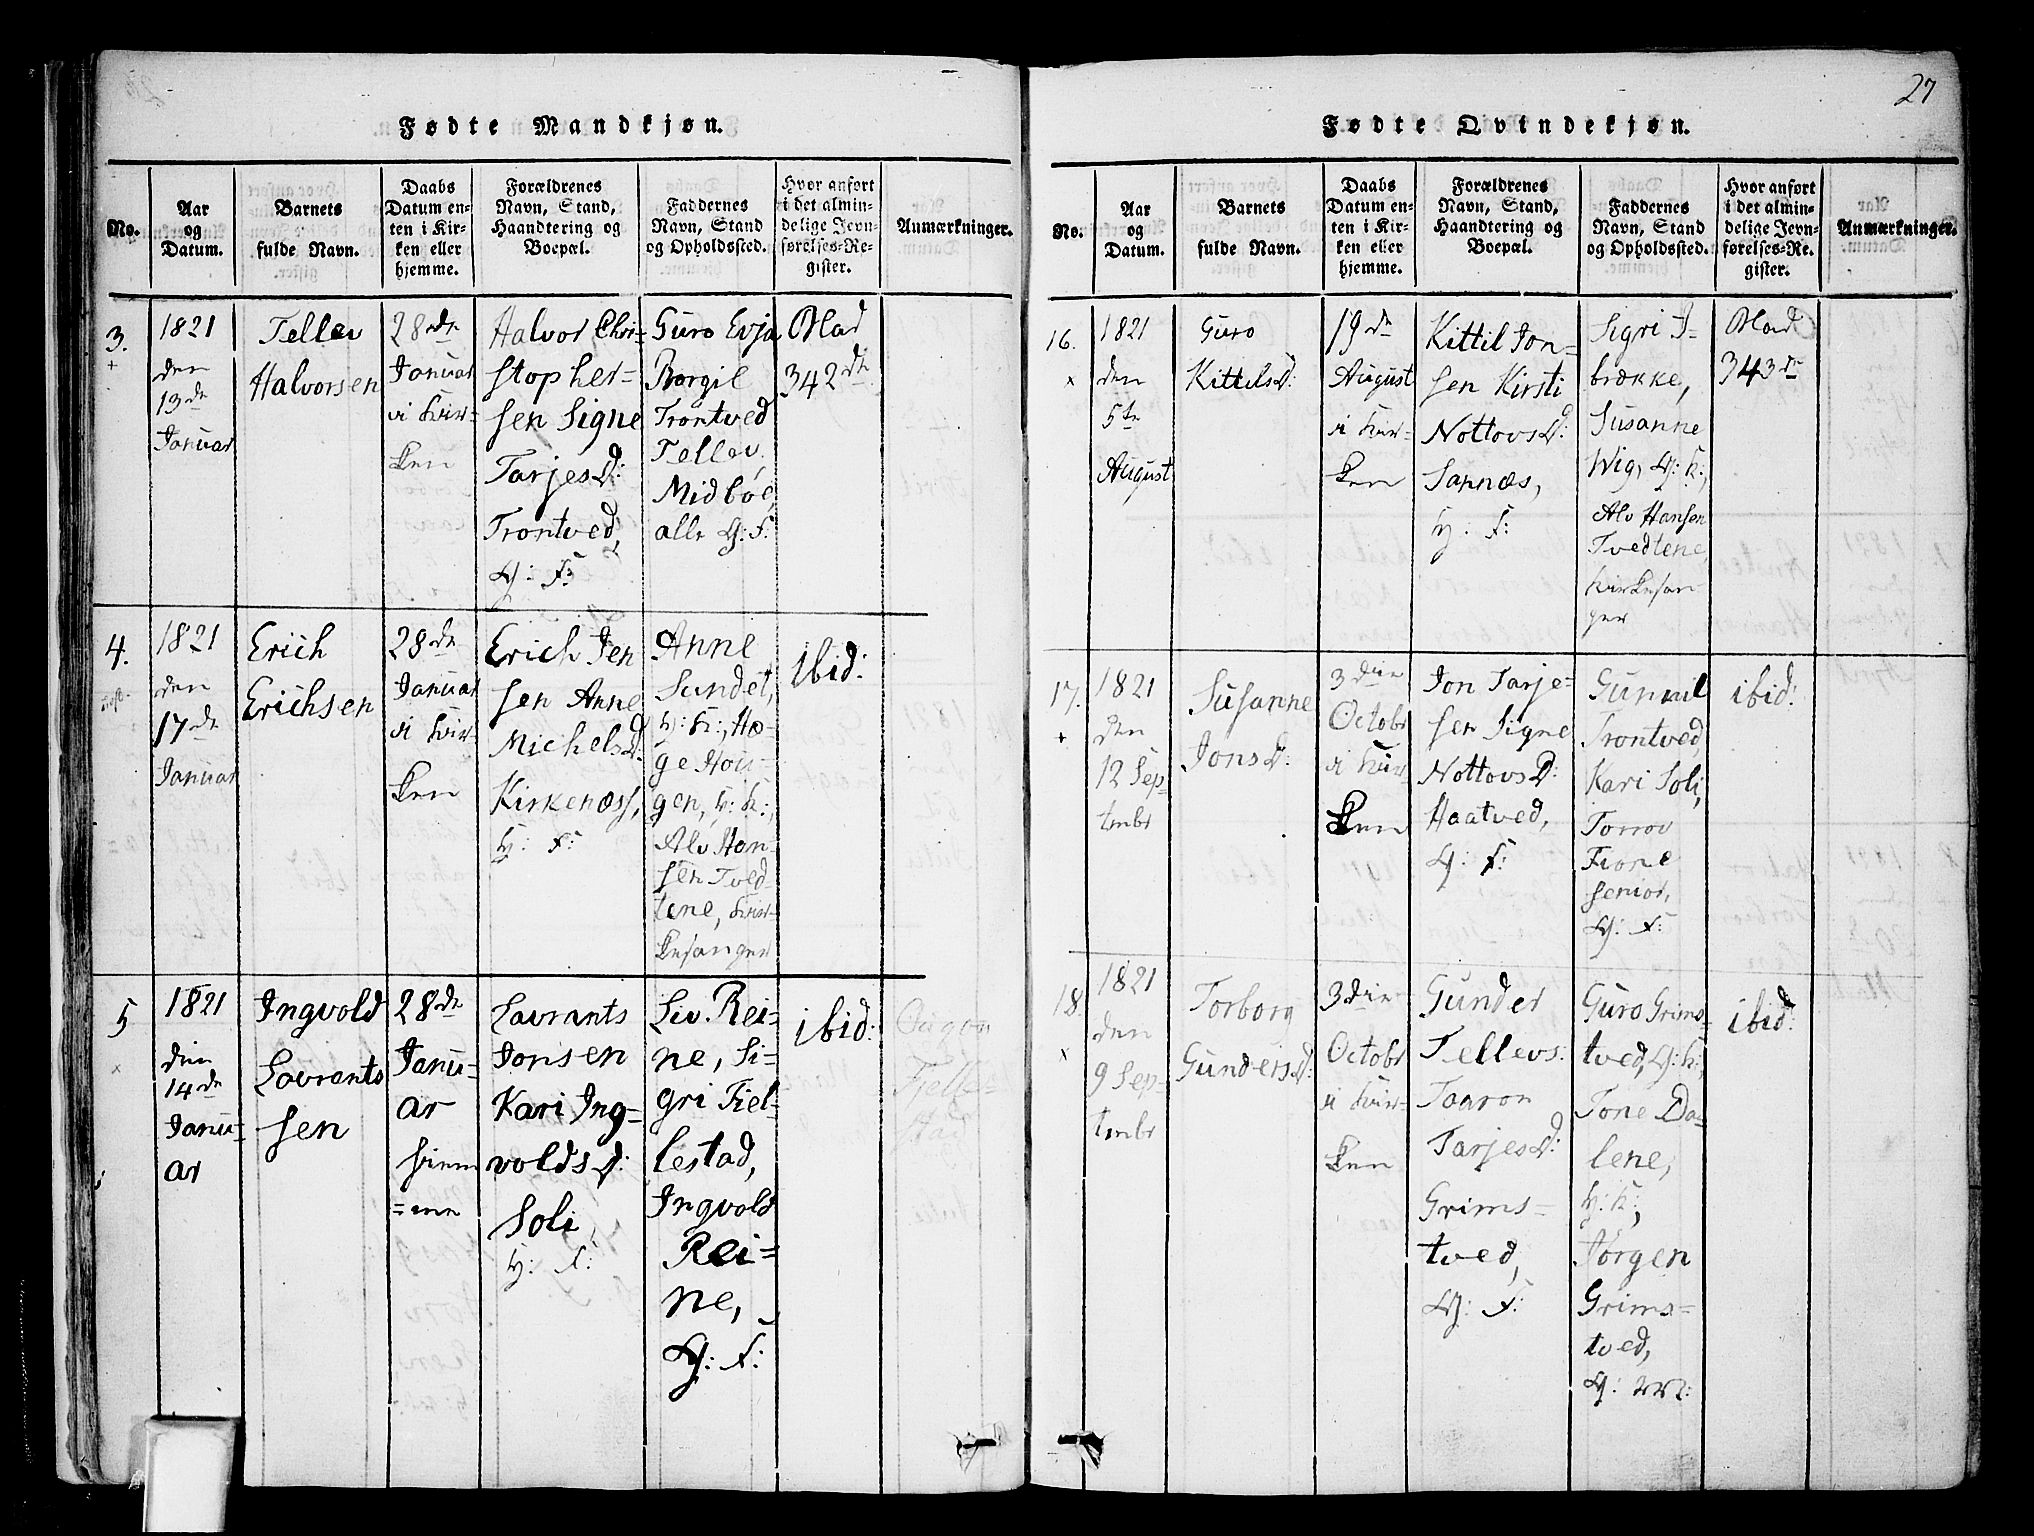 27
Fødte Mandkjøn.
No.
Aar
og
Datum.
Barnets
fulde Navn.
Daabs
Datum en-
ten i Kir-
ken eller
hjemme.
Forældrenes
Navn, Stand,
Haandtering og
Boepæl.
Faddernes
Navn, Stand
og Opholdssted.
Hvor anført
i det almin-
delige Jevn-
førelses-Re-
gister.
Anmærkninger.
3.
1821
den
13de
Januar
Tellev
Halvorsen
28de
Januar
i Kir-
ken
Halvor Chri-
stopher-
sen Signe
TarjesD:
Trontved,
G: F:
Guro Evja
Borgil
Trontved
Tellev
Midböe,
alle G: F:
Blad
342de
4.
1821
den
17de
Januar
Erich
Erichsen
28de
Januar
i Kir-
ken
Erich Jen
sen Anne
MichelsD:
Kirkenæss,
G: F:
Anne
Sundet,
G: K:, Ho-
ge Hou-
gen, G: K:,
Alv Han-
sen Tved-
tene, Kir-
kesanger
Ibid:
5
1821
den
14de
Janu-
ar
Ingvold
Lavrants
sen
28de
Janu-
ar
hjem
=me
Lavrants
Jonsen
Kari Ing-
voldsD:
Soli,
G: F:
Liv Rei-
ne, Si-
gri Fiel-
lestad,
Ingvold
Rei-
ne,
G: F:
ibid:
Fødte Qvindekjøn.
No.
Aar
og
Datum.
Barnets
fulde Navn.
Daabs
Datum en-
ten i Kir-
ken eller
hjemme.
Forældrenes
Navn, Stand,
Haandtering og
Boepæl.
Faddernes
Navn, Stand
og Opholdssted.
Hvor anført
i det almin-
delige Jevn-
førelses-Re-
gister.
Anmærkninger.
16.
1821
den
5te
August
Guro
KittelsD:
19de
August
i Kir-
ken
Kittil Jon-
sen Kirsti
NottovsD:
Sannæs,
G: F:
Sigri I-
brække,
Susanne
Wig, G: K:,
Alv Hansen
Tvedtene,
Kirkesan-
ger
Blad
343de
17.
1821
den
12 Sep-
tmbr
Susanne
JonsD:
3die
Octobr
i Kir
ken
Jon Tarje-
sen Signe
NottovsD:
Haatved,
G: F:
Gunnil
Trontved,
Kari Soli,
Torrov
Fione
senior,
G: F:
ibid:
18.
1821
den
9 Sep-
tmbr
Torborg
GundersD:
3die
Octobr
i Kir-
ken
Gunder
Tellevs:
Taaron
TarjesD:
Grims-
tved,
G: F:
Guro Grims-
tved, G: K:,
Tone Da-
lene,
G: K:,
Jörgen
Grims-
tved,
G: M:
ibid: